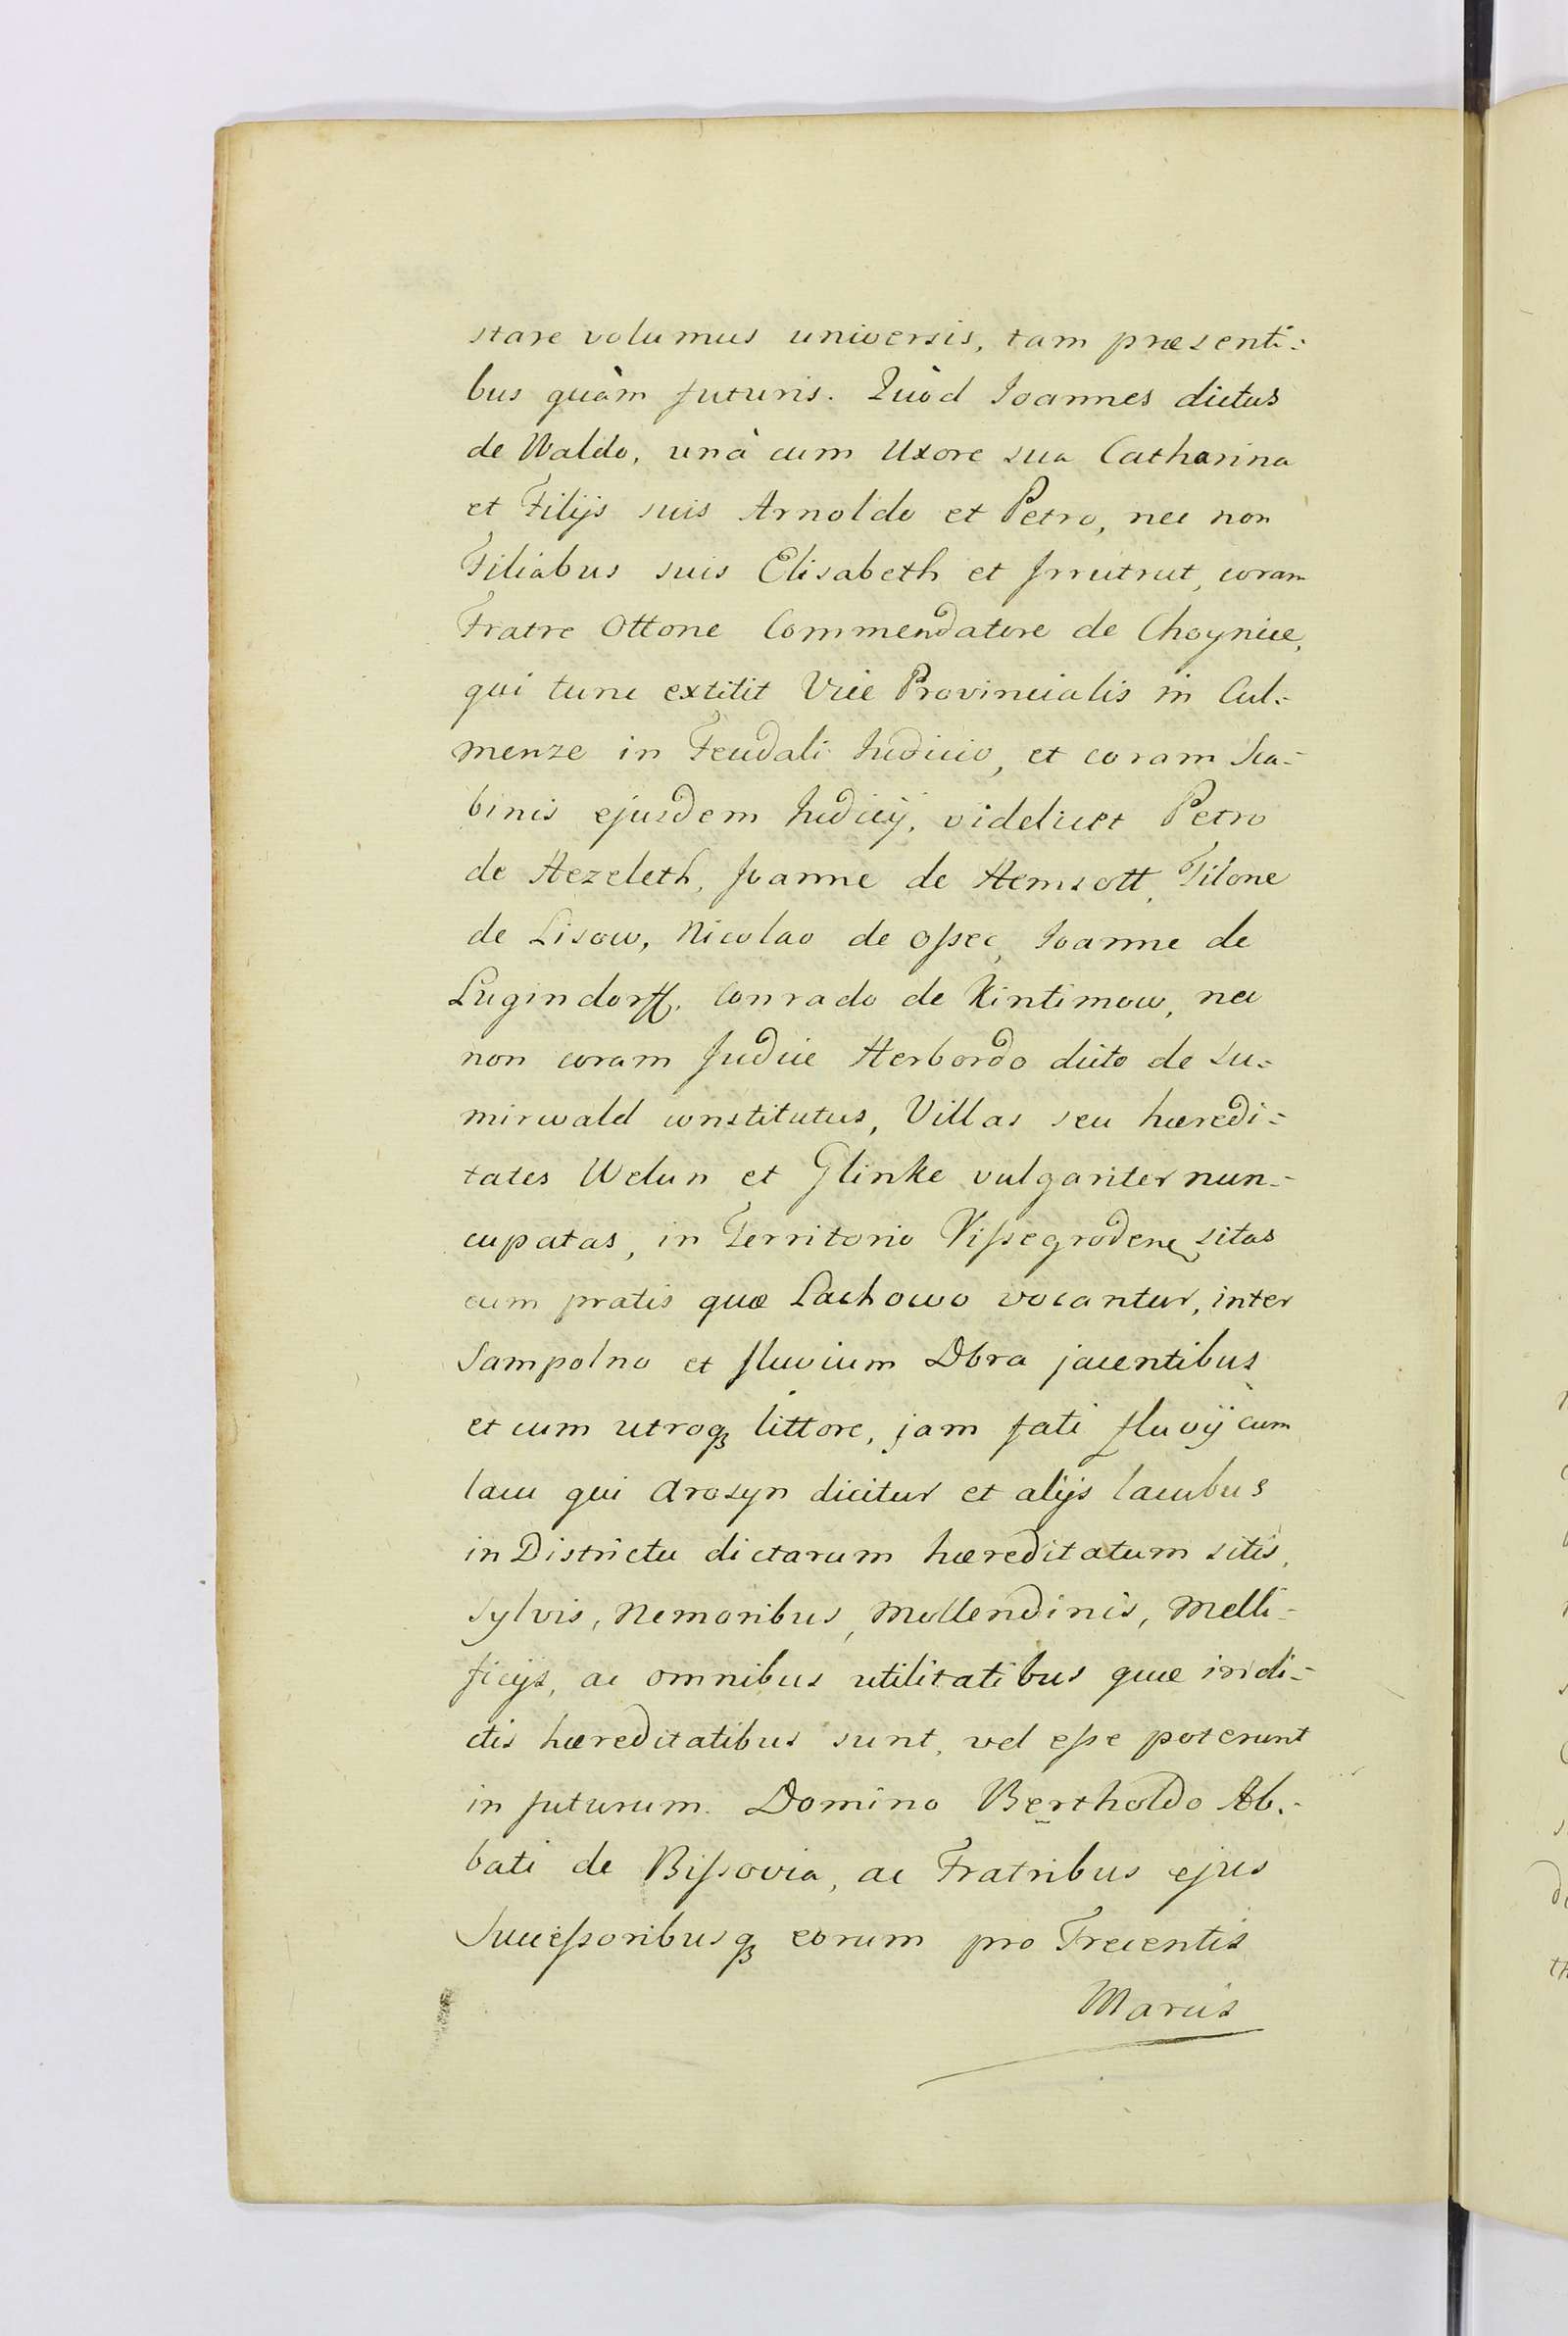 stare volumus universis, tam præsenti-
bus quàm futuris. Quòd Joannes dictus
de Waldo, unà cum Uxore sua Catharina
et Filijs suis Arnoldo et Petro, nec non
Filiabus suis Elisabeth et Irrutrut, coram
Fratre Ottone Commendatore de Choynice,
qui tunc extitit Vice Provincialis in Cul-
menze in Feudali Judicio, et coram Sca-
binis ejusdem Judicij, videlicet Petro
de Hezeleth, Joanne de Hemsott, Tilone
de Lisow, Nicolao de Ossec, Joanne de
Lugindorff, Conrado de Kintimow, nec
non coram Judice Herbordo dicto de Su-
mirwald constitutus, Villas seu hæredi-
tates Welun et Glinke vulgariter nun-
cupatas, in Territorio Vissegroden sitas
cum pratis quæ Lachowo vocantur, inter
Sampolno et fluvium Dbra jacentibus
et cum utroq littore, jam fati fluvij cum
lacu qui Arosyn dicitur et alijs lacubus
in Districtu dictarum hæreditatum sitis,
Sylvis, Nemoribus, Mollendinis, Melli-
ficijs, ac omnibus utilitatibus quæ in di-
ctis hæreditatibus sunt, vel esse poterunt
in futurum. Domino Bertholdo Ab-
bati de Bissovia, ac Fratribus ejus
Successoribusq eorum pro Trecentis
Marcis